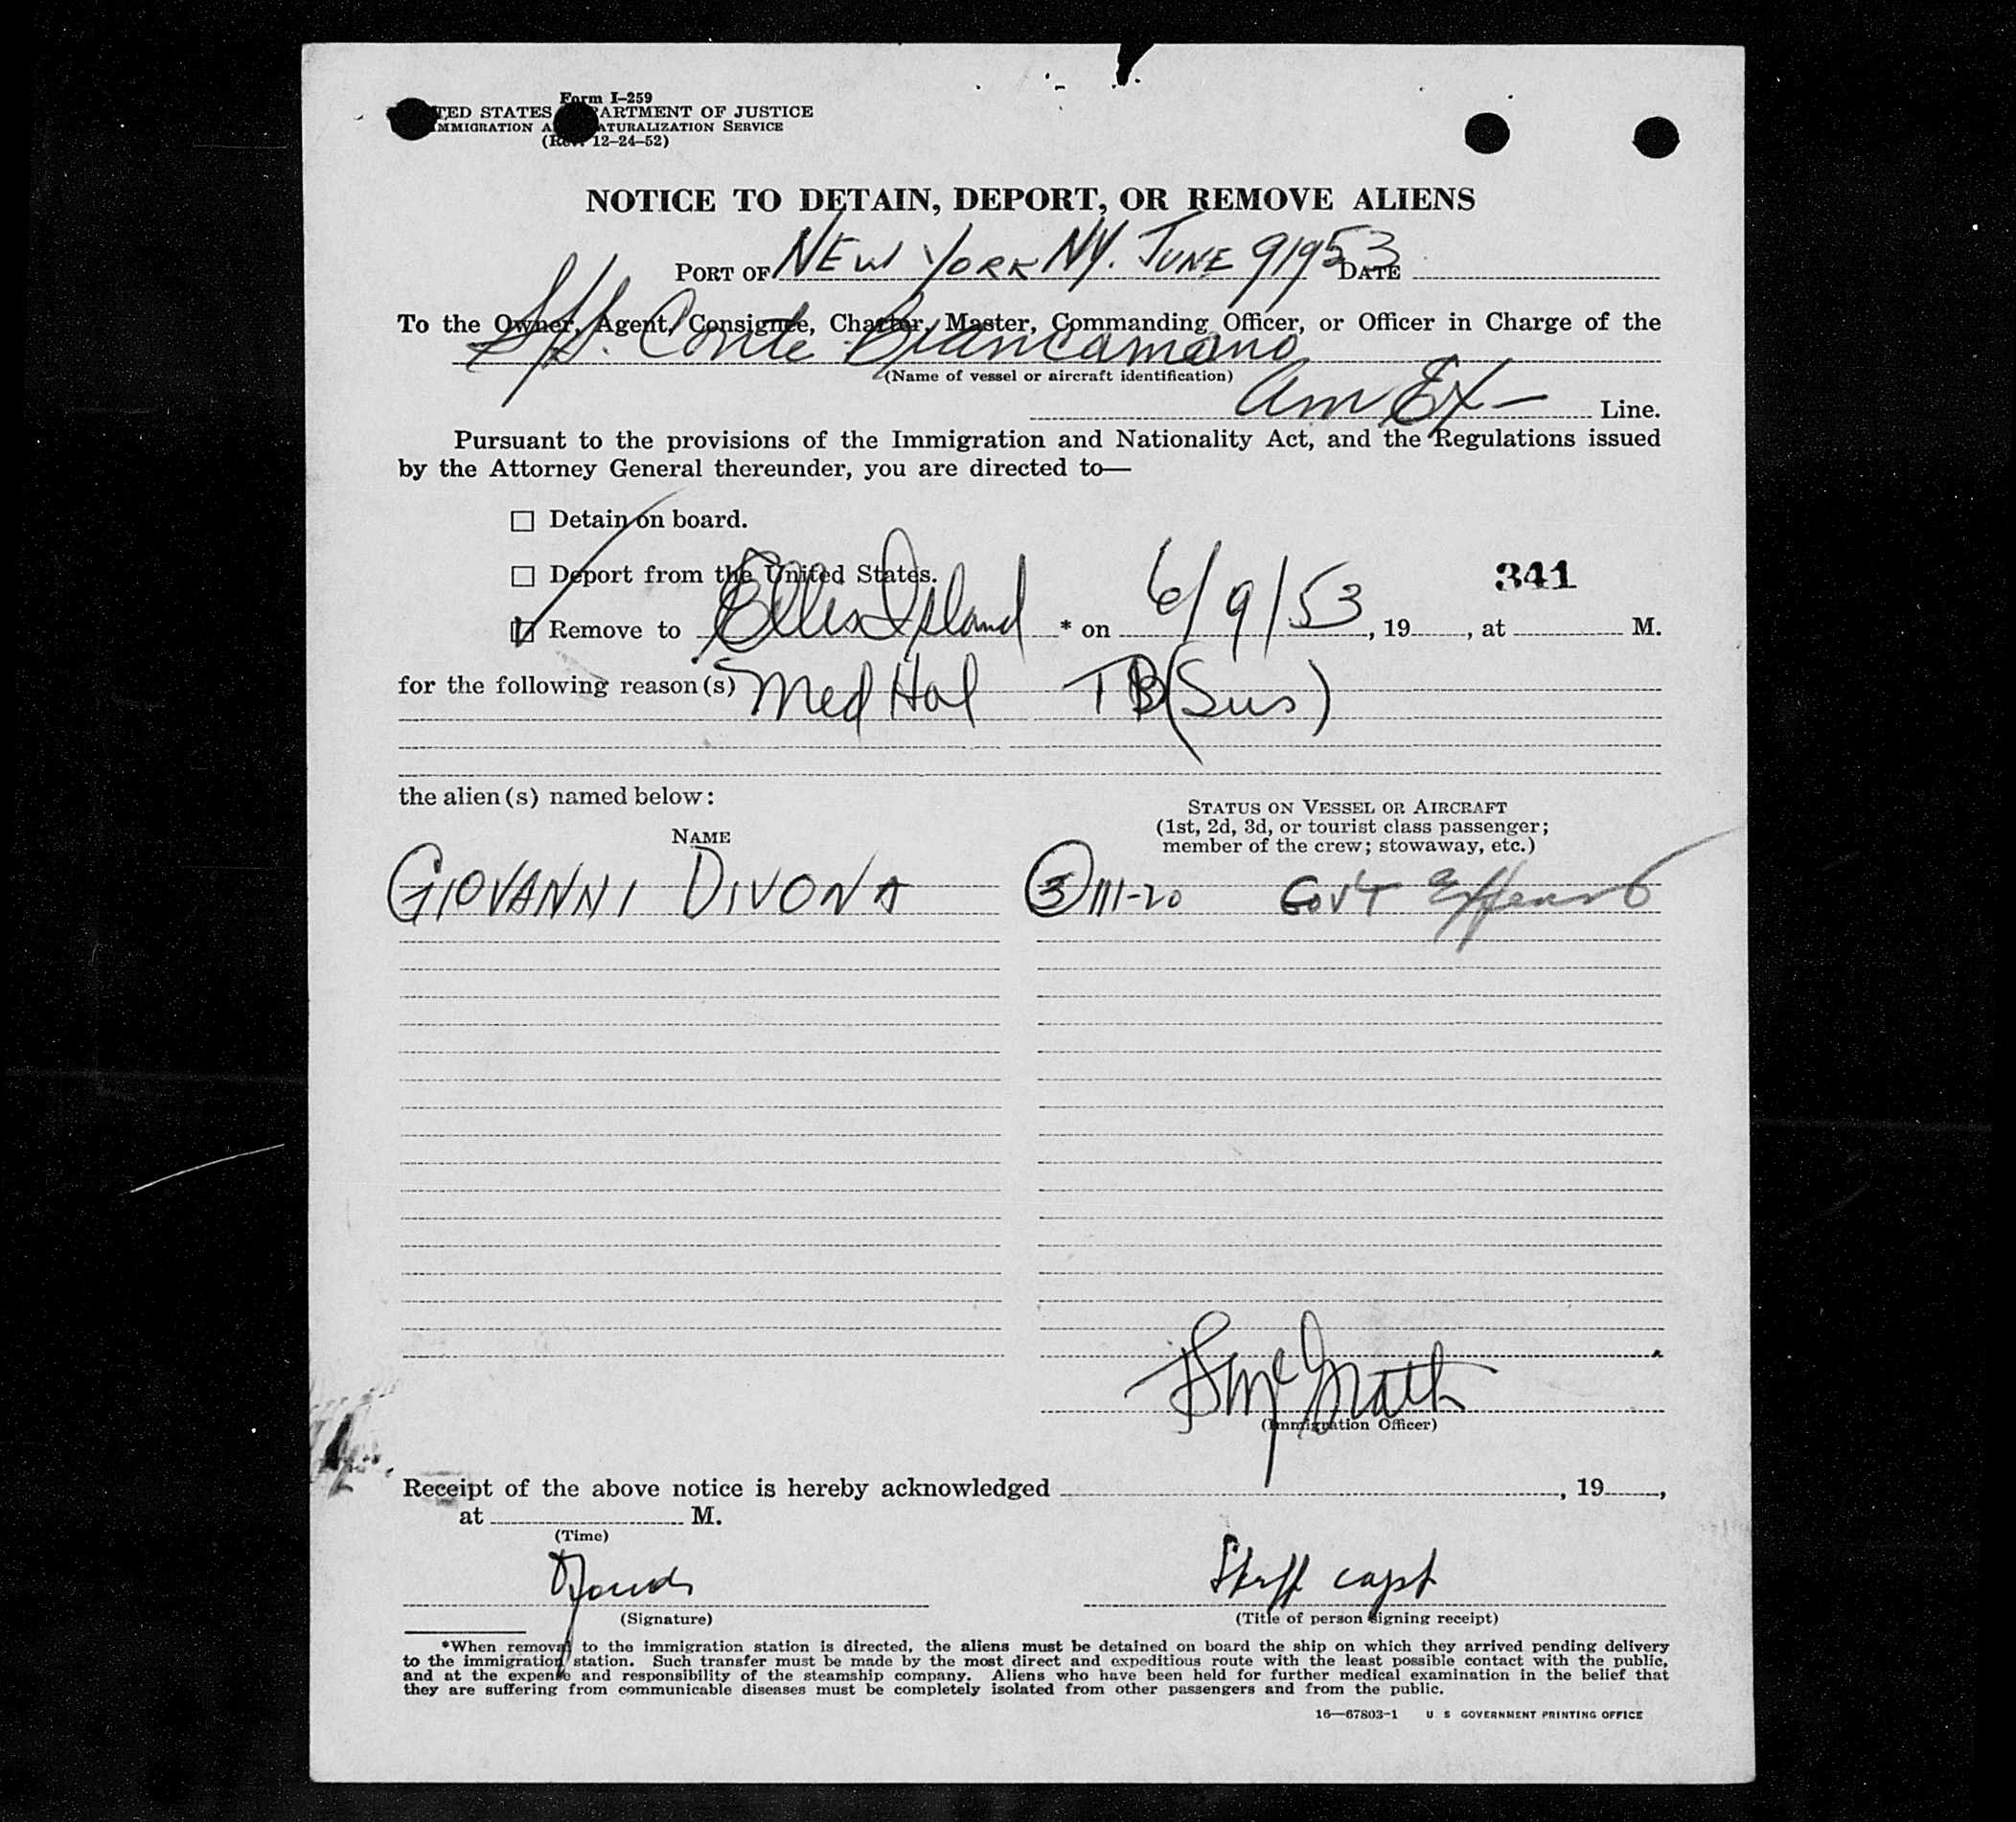 Form I-259
TED STATES ARTMENT OF JUSTICE
MMIGRATION A ATURALIZATION SERVICE
(Rev. 12-24-52)
NOTICE TO DETAIN, DEPORT, OR REMOVE ALIENS
PORT OF NEW YORK NY. JUNE 9 1953 DATE
To the Owner, Agent, Consignee, Charter, Master, Commanding Officer, or Officer in Charge of the
S/S. Conte Biancamano
(Name of vessel or aircraft identification)
Am Ex - Line.
Pursuant to the provisions of the Immigration and Nationality Act, and the Regulations issued
by the Attorney General thereunder, you are directed to—
☐ Detain on board.
☐ Deport from the United States.
341
☑ Remove to Ellis Island * on 6/9/53, 19, at M.
for the following reason(s) Med Hol TB (Sus)
the alien(s) named below:
STATUS ON VESSEL OR AIRCRAFT
(1st, 2d, 3d, or tourist class passenger;
member of the crew; stowaway, etc.)
NAME
GIOVANNI DIVONA ③ 111-20 GOV'T
McGrath
(Immigration Officer)
Receipt of the above notice is hereby acknowledged , 19 ,
at M.
(Time)
Staff capt
(Signature) (Title of person signing receipt)
*When removal to the immigration station is directed, the aliens must be detained on board the ship on which they arrived pending delivery
to the immigration station. Such transfer must be made by the most direct and expeditious route with the least possible contact with the public,
and at the expense and responsibility of the steamship company. Aliens who have been held for further medical examination in the belief that
they are suffering from communicable diseases must be completely isolated from other passengers and from the public.
16—67803-1 U S GOVERNMENT PRINTING OFFICE